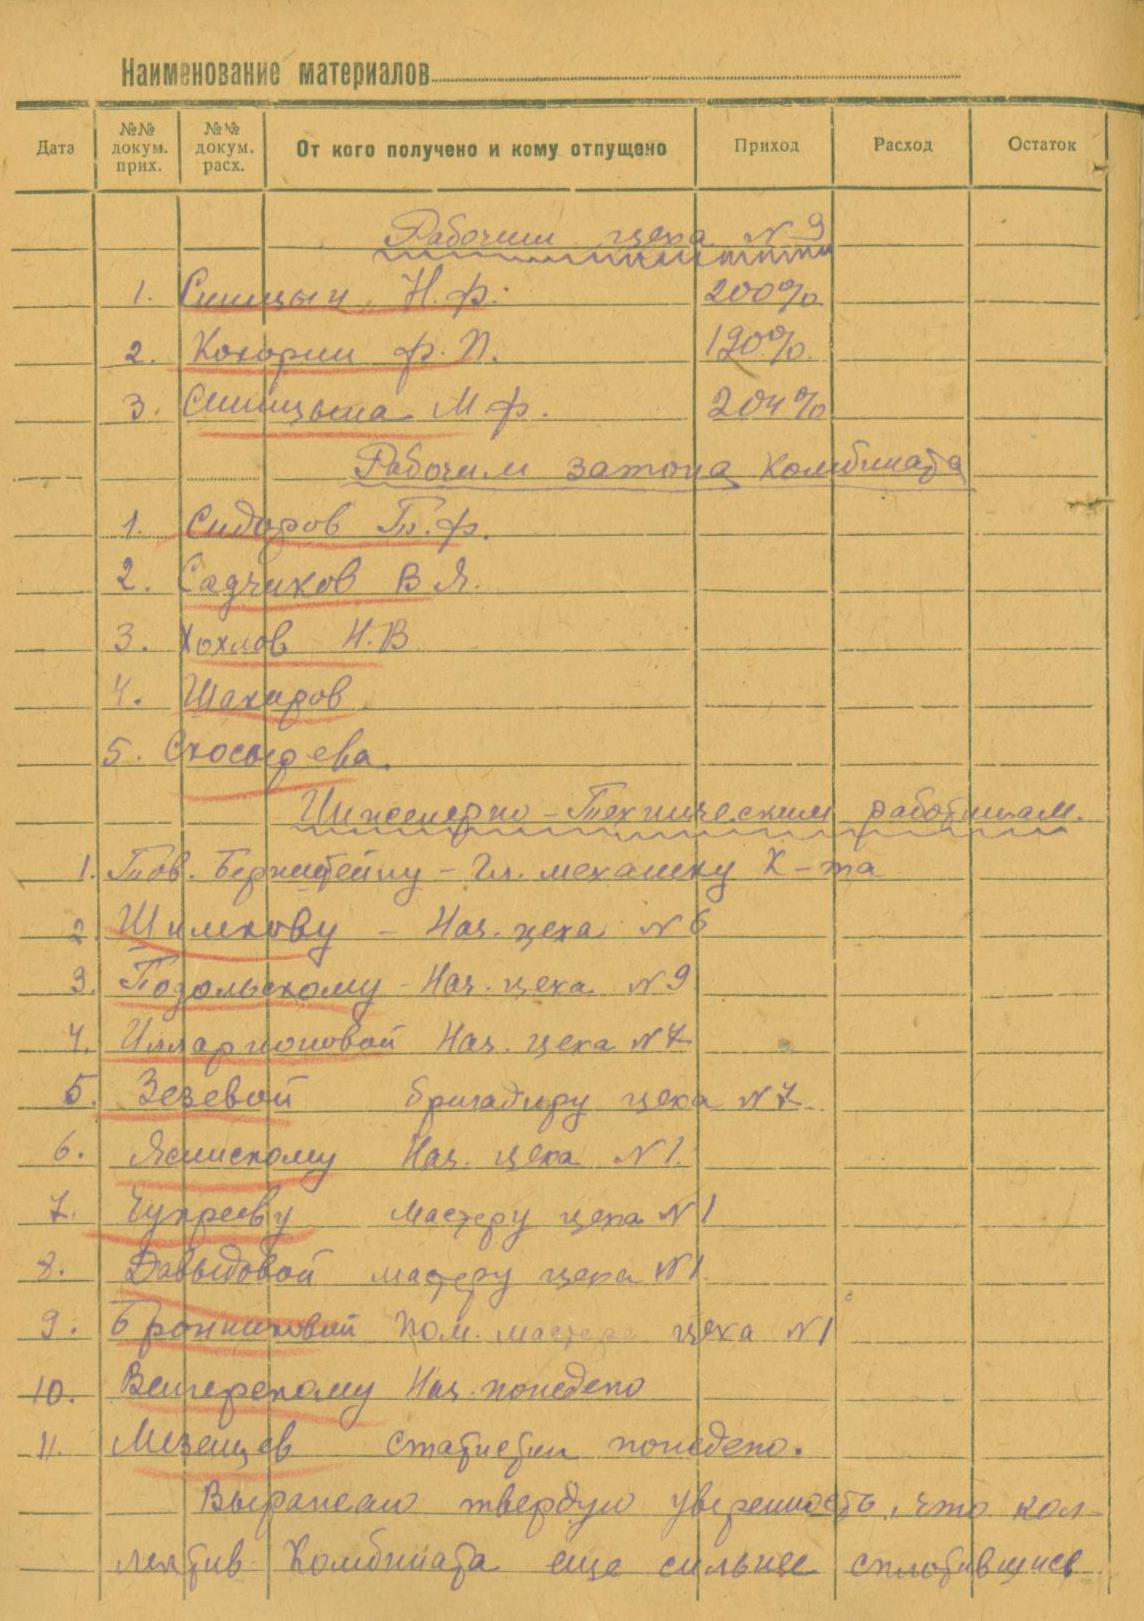 Наименование материалов
Дата №№ докум. прих. №№ докум. расх. От кого получено и кому отпущено Приход Расход Остаток
Рабочим цеха N 9
1. Синицын Н.Ф. 200%
2. Кокорин Ф.П. 190%
3. Синицына М.Ф. 204%
Рабочим затона Комбината
1. Сидоров Т.Ф.
2. Садчиков В.Я.
3. Хохлов Н.В
4. Шакиров
5. Скосырева.
Инженерно-Техническим работникам.
1. Тов. Бернштейну - Гл. механику К-та
2. Шилкову - Нач. цеха N 6
3. Подольскому - Нач. цеха N 9
4. Илларионовой Нач. цеха N 7
5. Зезевой бригадиру цеха N 7
6. Ясинскому Нач. цеха N 1.
7. мастеру цеха N 1
8. Давыдовой мастеру цеха N 1.
9. Бронниковой пом. мастера цеха N 1
10. Венгерскому Нач.
11. Мезенцев
Выражаю твердую уверенность, что кол-
лектив Комбината еще сильнее сплотившись